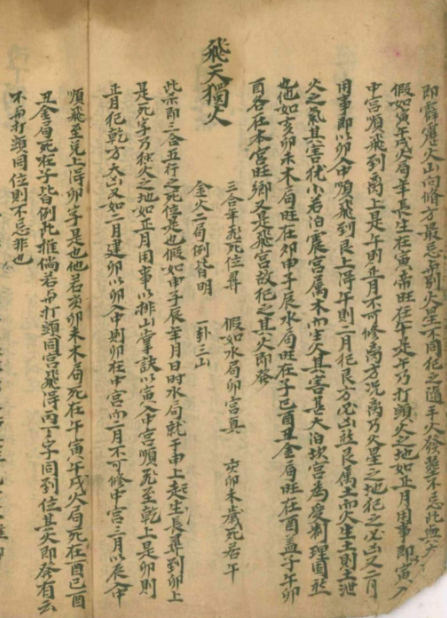 即霹靂火山向脩方最忌弔到火星不同犯之隨手火發墓不忌此無
假如寅午戌火局年長生在寅帝旺在午是午乃打頭火之地如正月用事即寅入
中宮順飛到离上是午則正月不可修离方况离乃火星之地犯之必凶又二月
用事即以卯入中順飛到艮上得午則二月犯艮方必凶然艮属土而火生土則土泄
火之氣其害犹小若泊震宮属木而生火其害甚大泊坎宮為受制理固然
也他如亥卯未木局旺在卯申子辰水局旺在子巳酉丑金局旺在酉盖子午卯
酉各在本宮旺鄉又是飛宮故犯之其火即發
飛天獨火
三合年死位尋 假如水局卯宮真 亥卯未歲死若午
金火二局例皆明 一卦三山
此乐即三合五行之死位是也假如申子辰年月日時水局就于申上起生長尋到卯上
是死子乃独火之地如正月用事以排山掌訣以寅入中宮順飛至乾上是卯則
正月犯乾方大凶又如二月建卯以卯入中則卯在中宮而二月不可修中宮三月以辰入中
順飛至兌上得卯子是也他若亥卯未木局死在午寅午戌火局死在酉巳酉
丑金局死在子皆例此推倘若与打頭同宮飛得丙丁字同到位其火即發有云
不与打頭同位則不忌非也